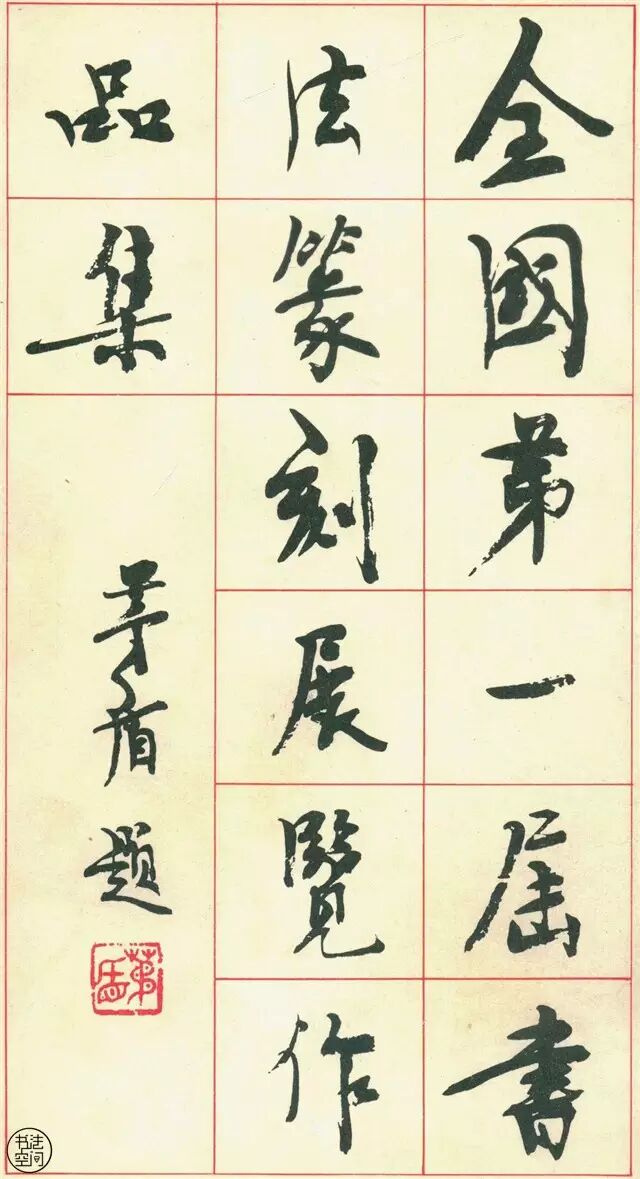 全國第一屆書
法篆刻展覽作
品集
茅盾題
茅盾
书法空间